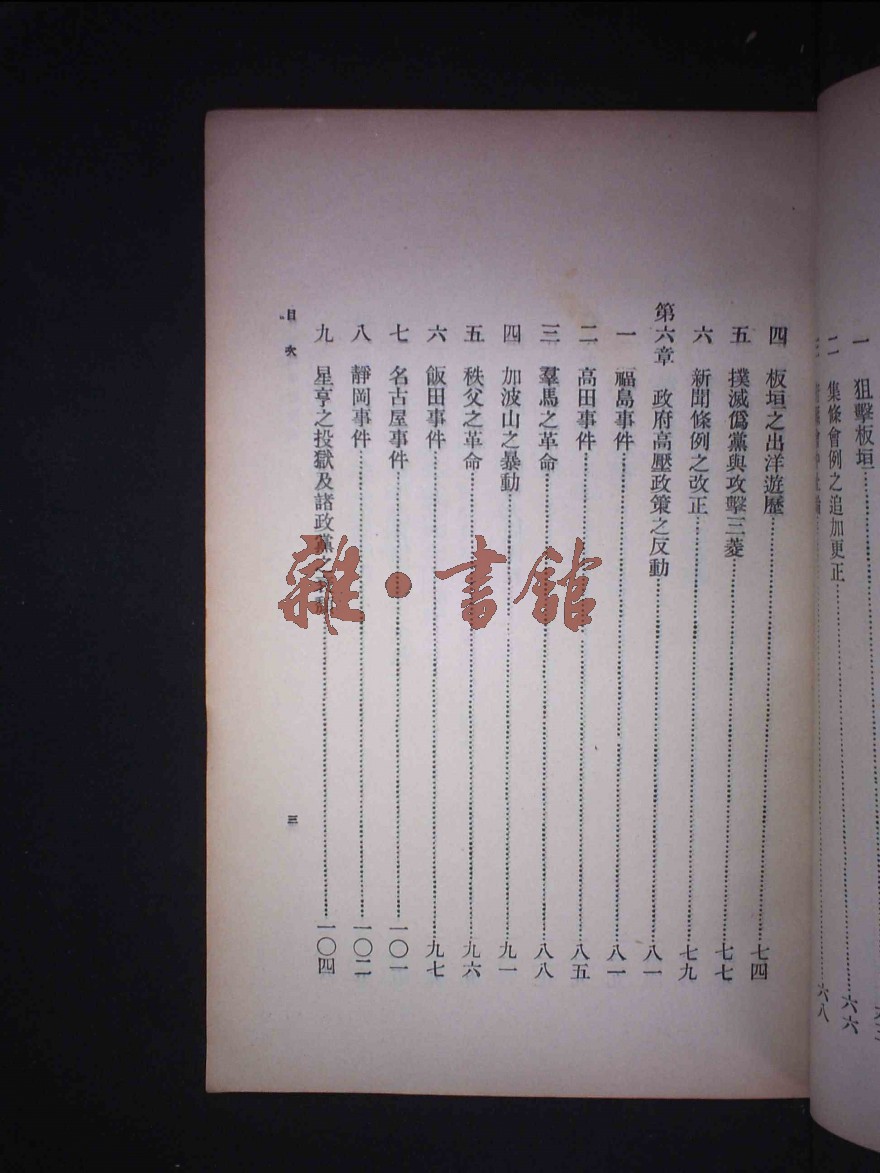 一 狙擊板垣
二 集條會例之追加更正 六六
六八
四 板垣之出洋遊歷 七四
五 撲滅僞黨與攻擊三菱 七七
六 新聞條例之改正 七九
第六章 政府高壓政策之反動 八一
一 福島事件 八一
二 高田事件 八五
三 羣馬之革命 八八
四 加波山之暴動 九一
五 秩父之革命 九六
六 飯田事件 九七
七 名古屋事件 一〇一
八 靜岡事件 一〇二
九 星亨之投獄及諸政黨之 一〇四
目次
三
雜·書館